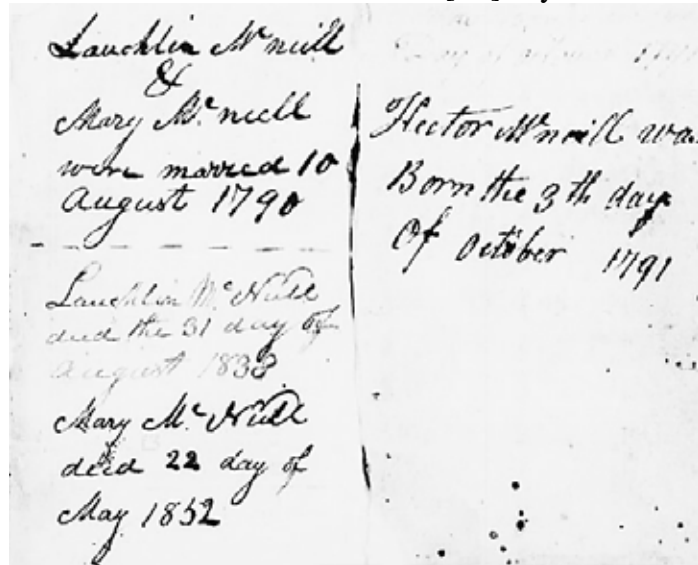 Lauchlin Mc neill
&
Mary Mc. neill
were married 10
August 1790
Lauchlin Mc Neill
died the 31 day of
August 1833
Mary Mc Neill
died 22 day of
May 1852
Hector Mc neill was
Born the 3 th day
Of October 1791